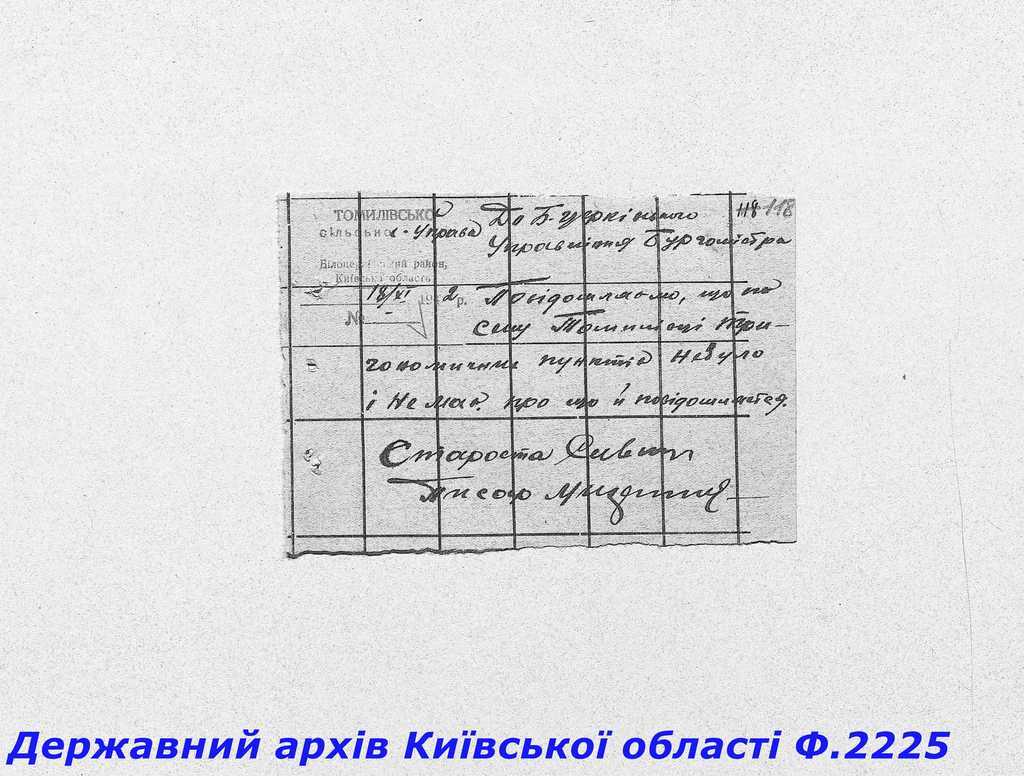 ТОМИЛІВСЬКО
сільсько с. Управа
район,
Київської область
18/VI 2 р.
№
До Б. Церківського
Управління Бургомістра
118 118
Повідомляємо, що на
селу Томилівці Три-
гономичних пунктів Небуло
і Немає. про що й повідомляєтся.
Староста
Писар
Державний архів Київської області Ф.2225